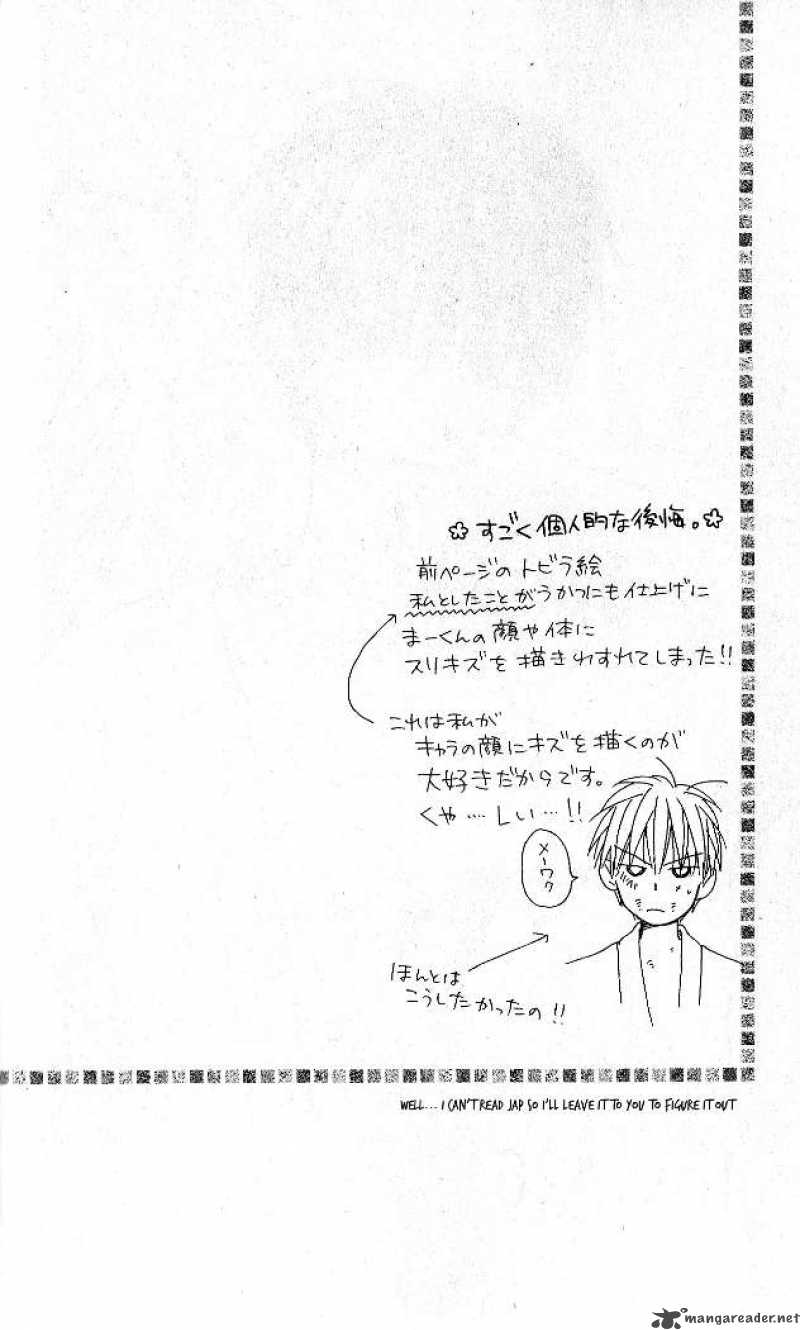 ✿すごく個人的な後悔。✿
前ページのトビラ絵
私としたことがうかつにも仕上げに
まーくんの顔や体に
スリキズを描きわすれてしまった!!
これは私が
キャラの顔にキズを描くのが
大好きだからです。
くや……しい…!!
メーワク
ほんとは
こうしたかったの!!
WELL... I CAN'T READ JAP SO I'LL LEAVE IT TO YOU TO FIGURE IT OUT
mangareader.net